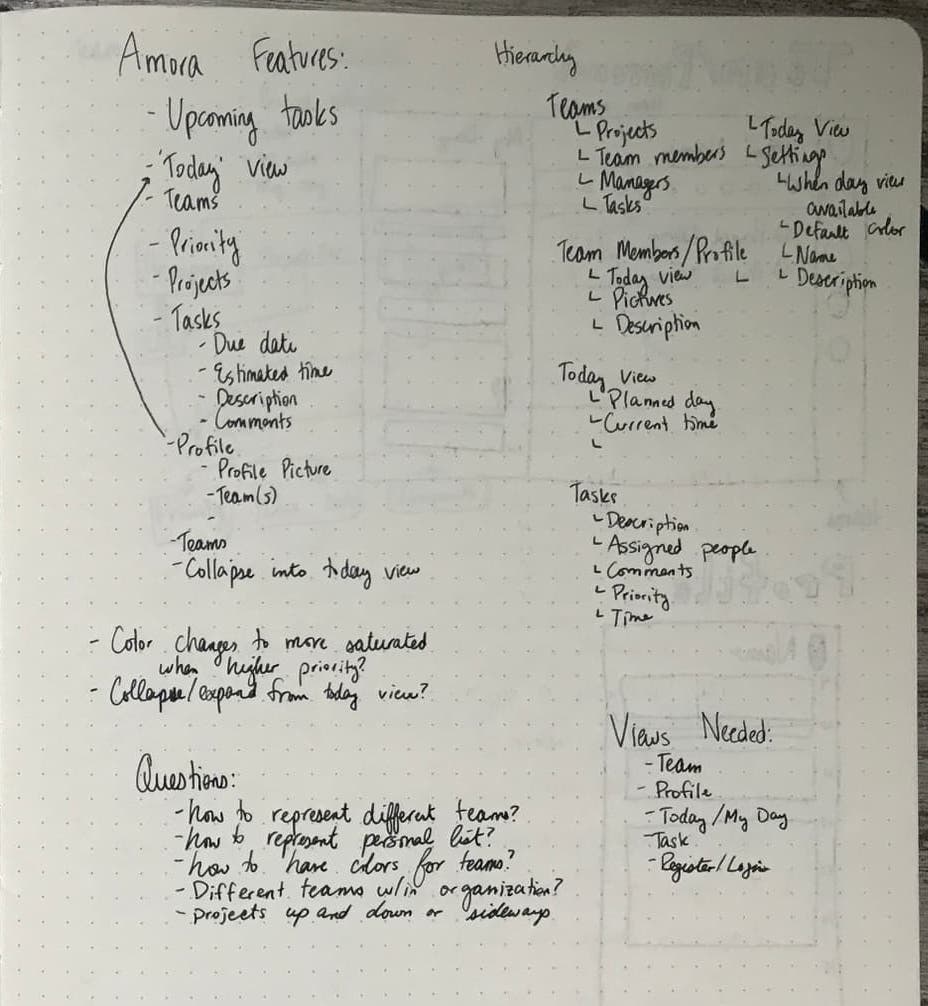 Amora Features:
- Upcoming tasks
- 'Today' view
- Teams
- Priority
- Projects
- Tasks
- Due date
- Estimated time
- Description
- Comments
- Profile
- Profile Picture
- Team(s)
-
- Teams
- Collapse into today view
- Color changes to more saturated
when higher priority?
- Collapse/expand from today view?
Questions:
- how to represent different teams?
- how to represent personal list?
- how to have colors for teams?
- Different teams w/in organization?
- projects up and down or sideways
Hierarchy
Teams
└ Projects
└ Team members
└ Managers
└ Tasks
└ Today View
└ Settings
└ When day view
available
└ Default color
└ Name
└ Description
Team Members/Profile
└ Today view
└
└ Pictures
└ Description
Today View
└ Planned day
└ Current time
└
Tasks
└ Description
└ Assigned people
└ Comments
└ Priority
└ Time
Views Needed:
- Team
- Profile
- Today/My Day
- Task
- Register/Login